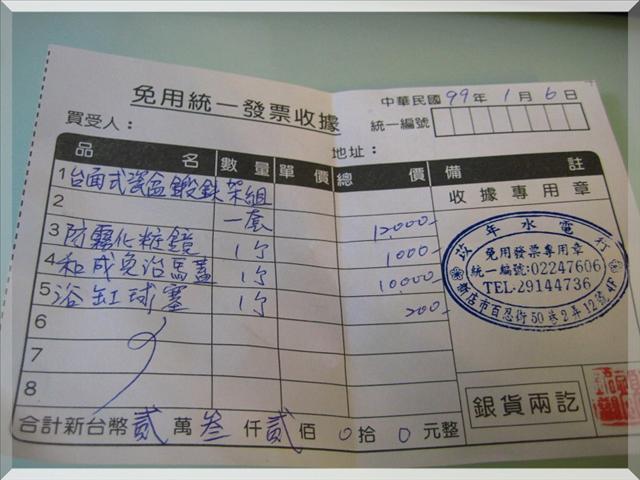 免用統一發票收據
中華民國 99 年 1 月 6 日
統一編號
買受人：
地址：
品名 數量 單價 總價 備註
1 台面式瓷盆鍛鉄架組
收據專用章
2 一套 12,000-
3 防霧化粧鏡 1个 1000-
4 和成免治馬蓋 1个 10000-
5 浴缸球塞 1个 200-
6
7
8
年水電行
免用發票專用章
統一編號:02247606
TEL-29144736
新店市百忍街50巷2弄12號4F
銀貨兩訖
合計新台幣 貳 萬 叁 仟 貳 佰 0 拾 0 元整